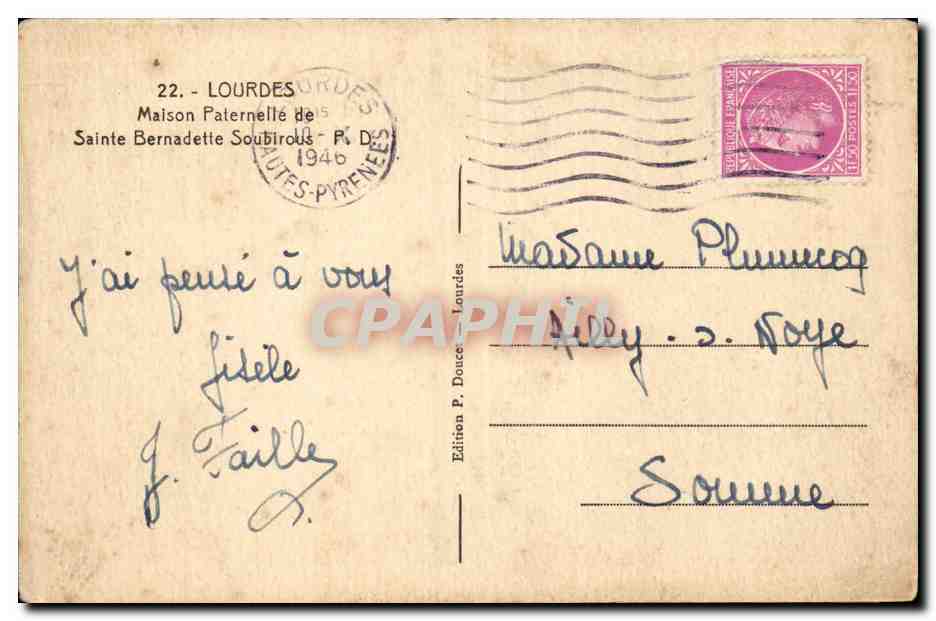 22. - LOURDES
Maison Paternelle de
Sainte Bernadette Soubirous P. D.
LOURDES
10 - X
1946
HAUTES-PYRENEES
REPUBLIQUE FRANÇAISE
1F50 POSTES 1F50
J'ai pensé à vous
Gisèle
J. Faille
Edition P. Doucet - Lourdes
CPAPHIL
Madame Plumecoq
Ailly . s. Noye
Somme